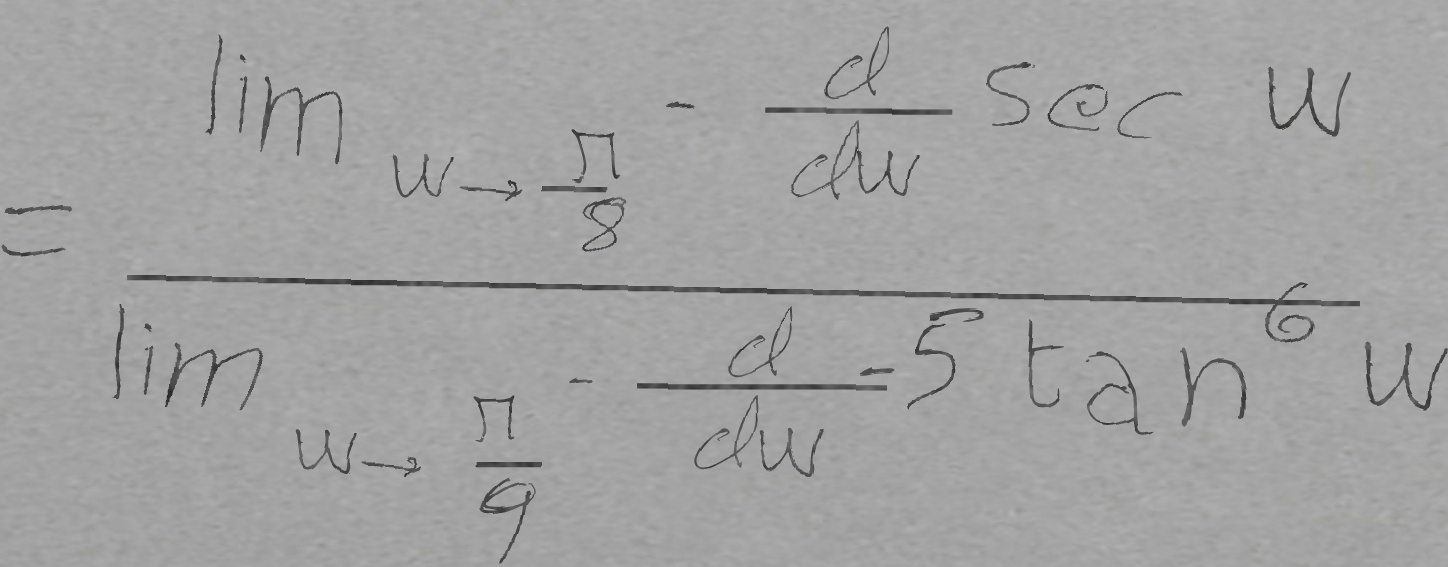 = \frac{\lim_{w \to \frac{\pi}{8}^-} \frac{d}{dw} \sec w}{\lim_{w \to \frac{\pi}{9}^-} \frac{d}{dw} -5 \tan^6 w}